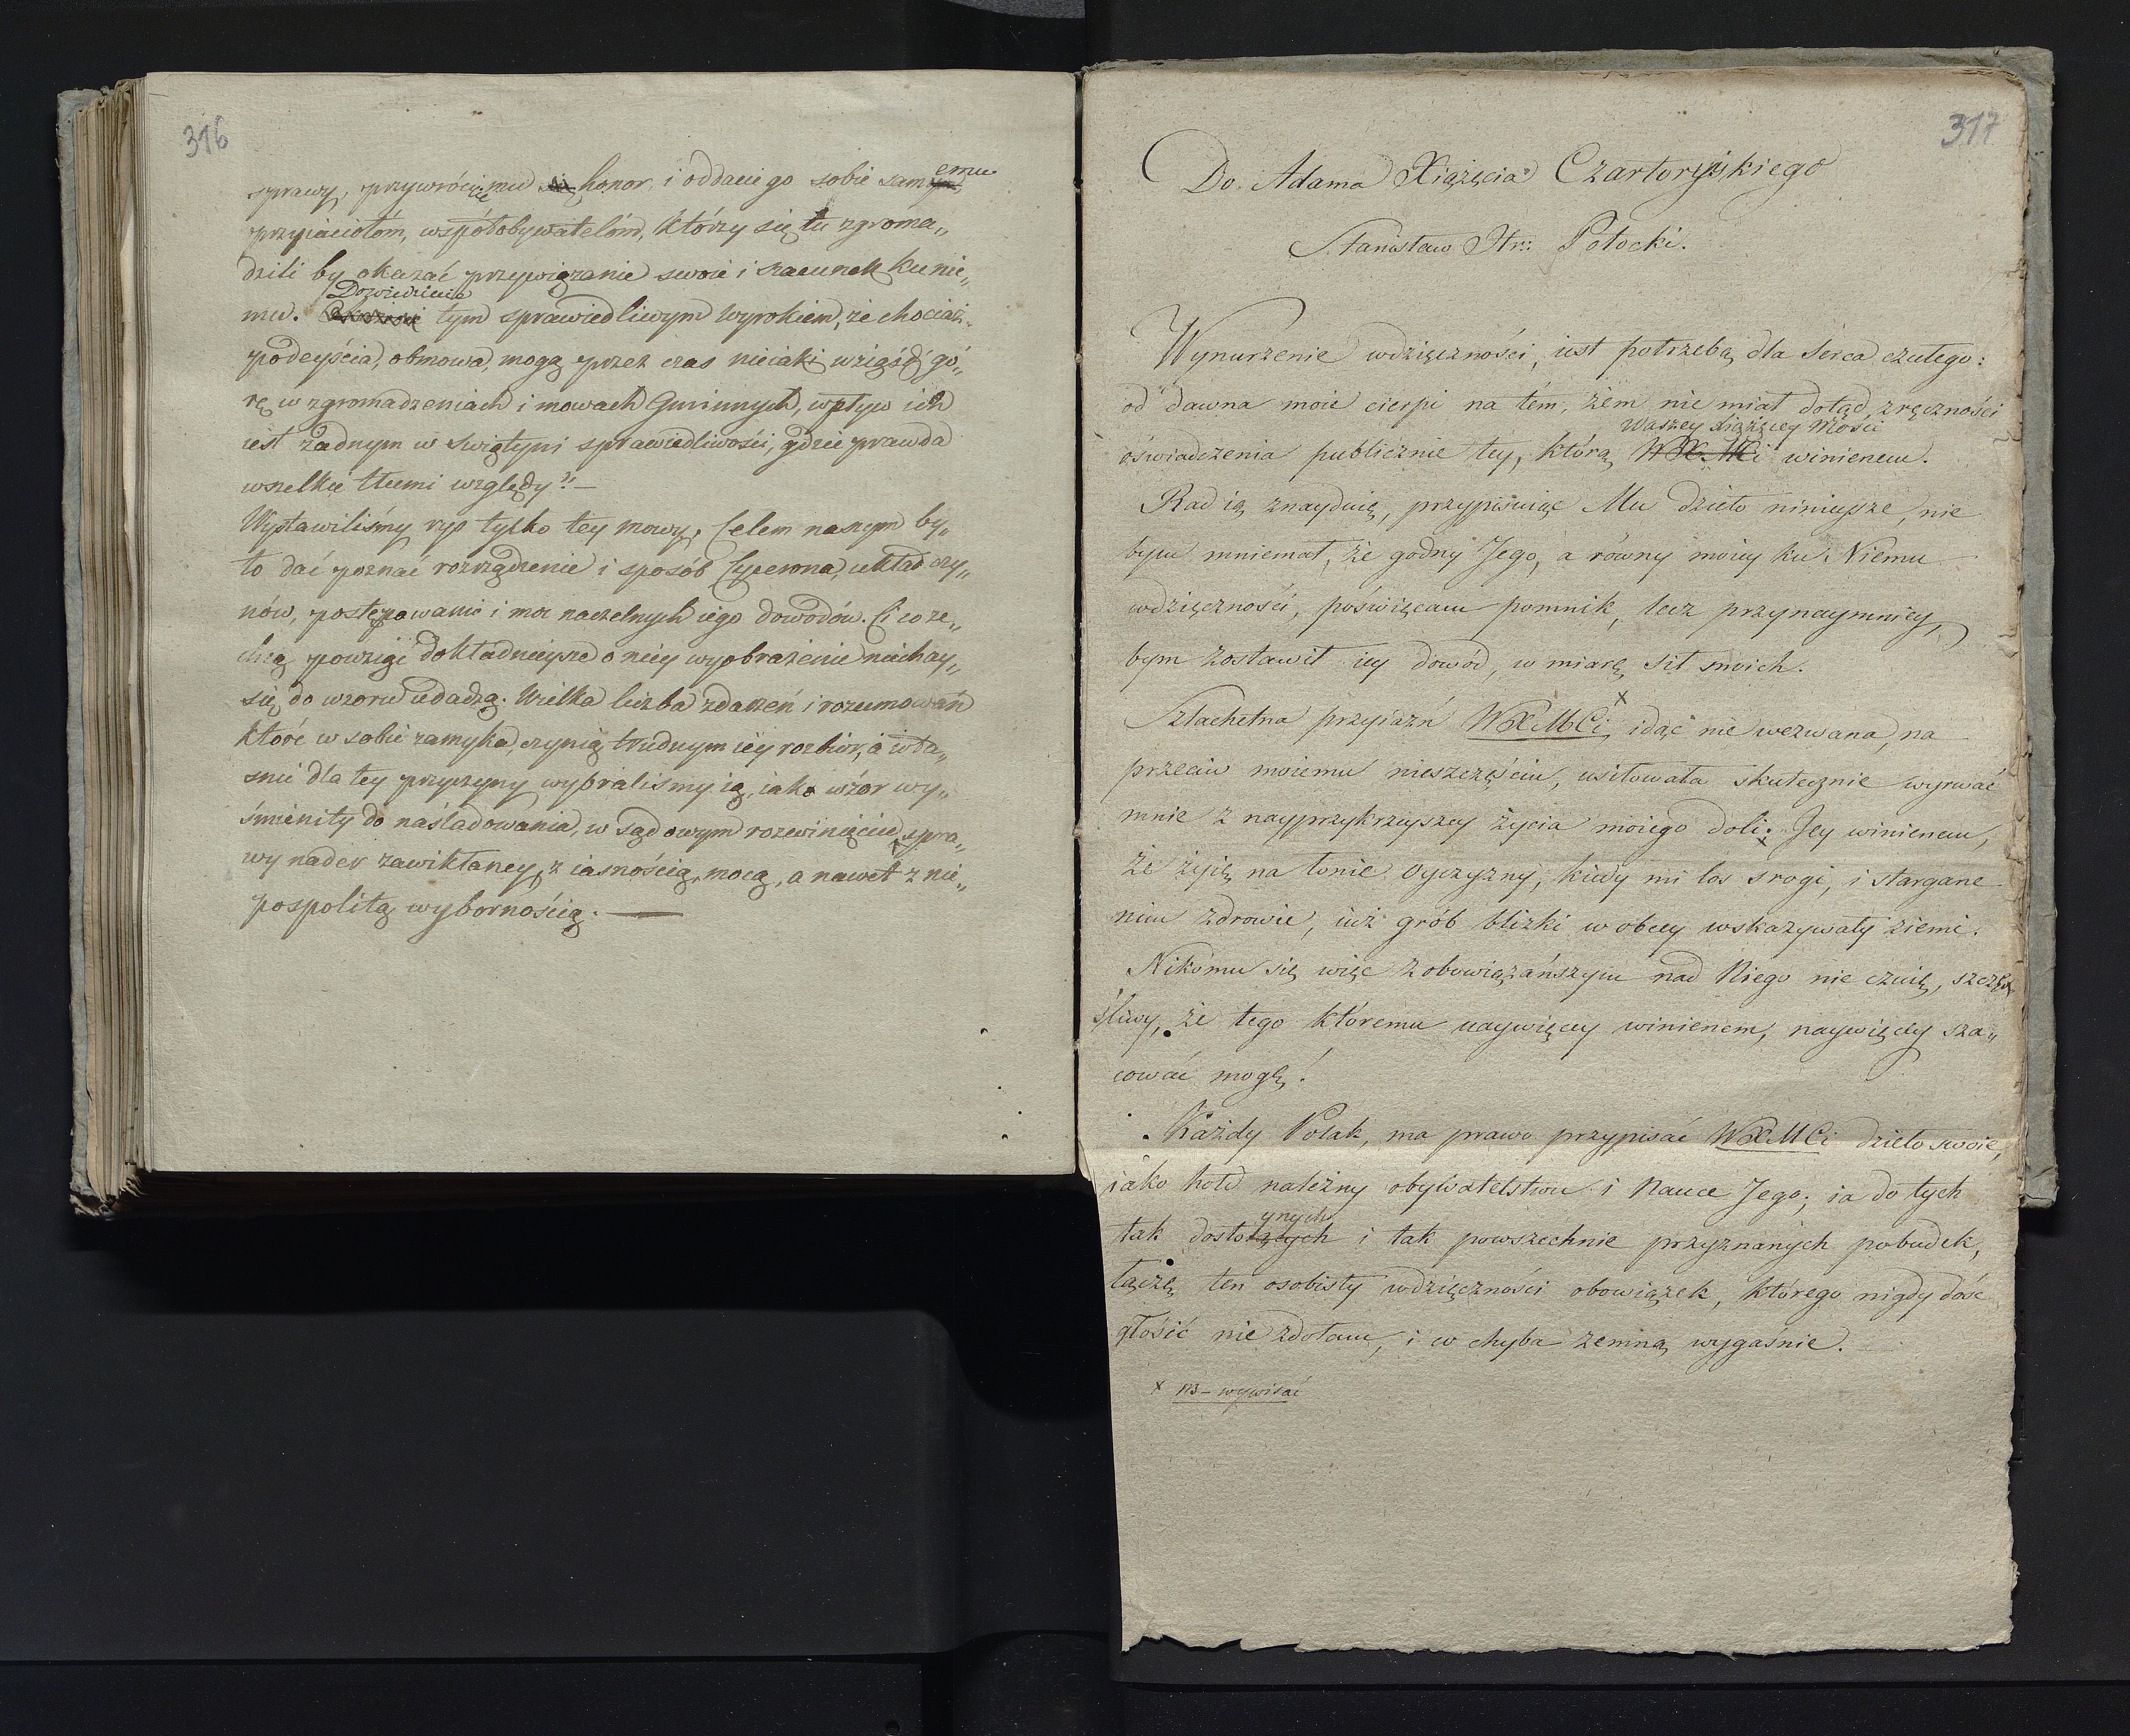 316
sprawy, przywróćcie mu honor, i oddaycie go sobie samemu
przyiaciołóm, współobywatelóm, którzy się tu zgroma„
dzili by okazać przywiązanie swoie i szacunek ku nie„
mu. Dozwiedzicie tym sprawiedliwym wyrokiem, że chociaż
podeyścia, obmowa, mogą przez czas nieiaki wziąść gó„
rę w zgromadzeniach i mowach Gminnych, wpływ ich
iest żadnym w Swiątyni sprawiedliwości, gdzie prawda
wszelkie tłumi względy”. —
Wystawiliśmy rys tylko tey mowy, Celem naszym by„
ło dać poznać rozrządzenie i sposób Cycerona, układ czy„
nów, postępowanie i moc naczelnych iego dowodów. Ci co ze„
chcą powziąć dokładnieysze o niéy wyobrażenie niechay„
się do wzoru udadzą. Wielka liczba zdarzeń i rozumowań
które w sobie zamyka, czynią trudnym iéy rozbiór, a wła„
snie dla tey przyczyny wybraliśmy ią, iako wzór wy„
śmienity do naśladowania, w sądowym rozwinięciu spra„
wy nader zawikłaney, z iasnością, mocą, a nawet z nie„
pospolitą wybornością. —
317
Do Adama Xiążęcia Czartoryskiego
Stanisław Hr: Potocki.
Wynurzenie wdzięczności, iest potrzebą dla Serca czułego:
od dawna moie cierpi na tém, żem nie miał dotąd, zręczności
Waszey Xiążęcey Mości
oświadczenia publicznie tey, którą WXMCi winienem.
Rad ią znayduię, przypisuiąc Mu dzieło ninieysze, nie
bym mniemał, że godny Jego, a równy moiey ku Niemu
wdzięczności, poświęcam pomnik, lecz przynaymniey,
bym zostawił iey dowód, w miarę sił moich.
Szlachetna przyiaźń WXMCi x, idąc nie wezwana, na
przeciw moiemu nieszczęściu, usiłowała skutecznie wyrwać
mnie z nayprzykrzeyszey życia moiego doli; Jey winienem,
że żyię na łonie oyczyzny, kiedy mi los srogi, i stargane
nim zdrowie, iuż grób blizki w obcey wskazywały ziemi.
Nikómu się więc zobowiązańszym nad Niego nie czuię, szczę„
śliwy, że tego któremu naywięcey winienem, naywięcey sza„
cować mogę.
Każdy Polak, ma prawo przypisać WXMCi dzieło swoie,
iako hołd należny obywatelstwu i Nauce Jego; ia do tych
tak dostoynych i tak powszechnie przyznanych pobudek,
łączę, ten osobisty wdzięczności obowiązek, którego nigdy dość
głosić nie zdołam, i co chyba zemną wygaśnie.
x NB – wypisać